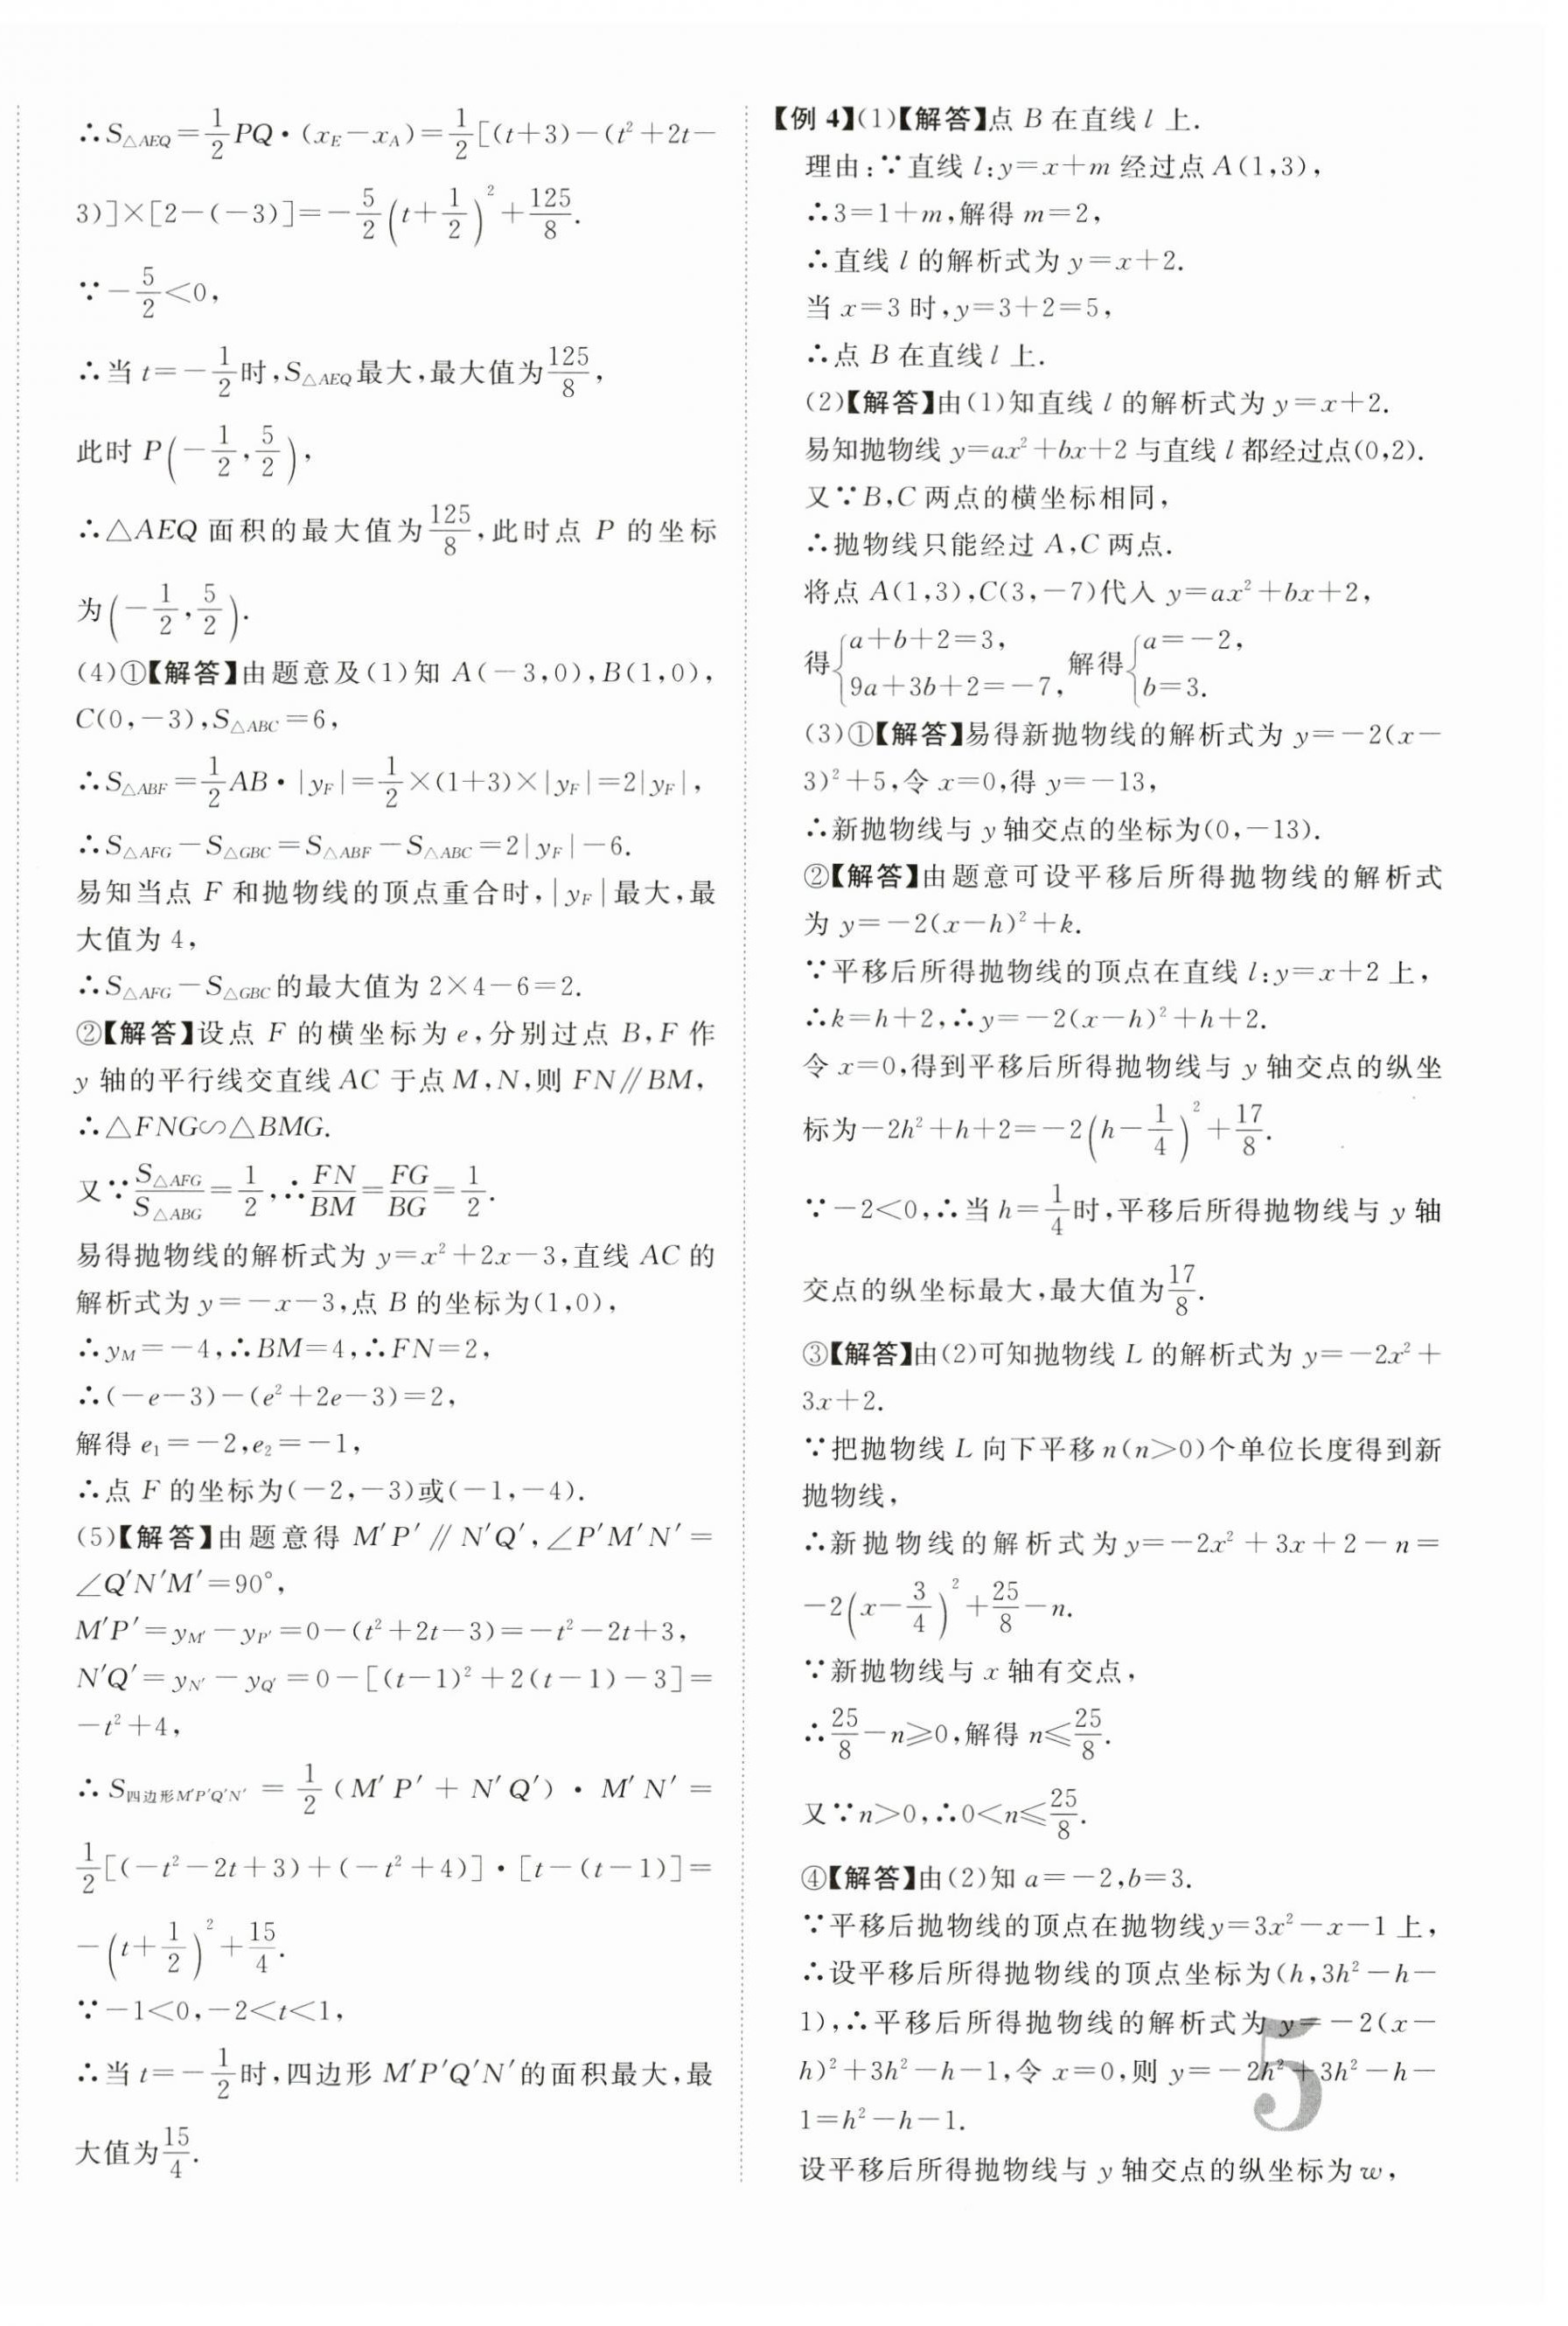 ∴S△AEQ=1/2PQ·(xE−xA)=1/2[(t+3)−(t²+2t−
3)]×[2−(−3)]=−5/2(t+1/2)²+125/8.
∵−5/2<0,
∴当 t=−1/2时,S△AEQ最大,最大值为125/8,
此时 P(−1/2,5/2),
∴△AEQ 面积的最大值为125/8,此时点 P 的坐标
为(−1/2,5/2).
(4)①【解答】由题意及(1)知 A(−3,0),B(1,0),
C(0,−3),S△ABC=6,
∴S△ABF=1/2AB·|yF|=1/2×(1+3)×|yF|=2|yF|,
∴S△AFG−S△GBC=S△ABF−S△ABC=2|yF|−6.
易知当点 F 和抛物线的顶点重合时,|yF|最大,最
大值为 4,
∴S△AFG−S△GBC的最大值为 2×4−6=2.
②【解答】设点 F 的横坐标为 e,分别过点 B,F 作
y 轴的平行线交直线 AC 于点 M,N,则 FN∥BM,
∴△FNG∽△BMG.
又∵S△AFG/S△ABG=1/2,∴FN/BM=FG/BG=1/2.
易得抛物线的解析式为 y=x²+2x−3,直线 AC 的
解析式为 y=−x−3,点 B 的坐标为(1,0),
∴yM=−4,∴BM=4,∴FN=2,
∴(−e−3)−(e²+2e−3)=2,
解得 e₁=−2,e₂=−1,
∴点 F 的坐标为(−2,−3)或(−1,−4).
(5)【解答】由题意得 M′P′∥N′Q′,∠P′M′N′=
∠Q′N′M′=90°,
M′P′=yM′−yP′=0−(t²+2t−3)=−t²−2t+3,
N′Q′=yN′−yQ′=0−[(t−1)²+2(t−1)−3]=
−t²+4,
∴S四边形M′P′Q′N′=1/2(M′P′+N′Q′)·M′N′=
1/2[(−t²−2t+3)+(−t²+4)]·[t−(t−1)]=
−(t+1/2)²+15/4.
∵−1<0,−2<t<1,
∴当 t=−1/2时,四边形 M′P′Q′N′的面积最大,最
大值为15/4.
【例 4】(1)【解答】点 B 在直线 l 上.
理由:∵直线 l:y=x+m 经过点 A(1,3),
∴3=1+m,解得 m=2,
∴直线 l 的解析式为 y=x+2.
当 x=3 时,y=3+2=5,
∴点 B 在直线 l 上.
(2)【解答】由(1)知直线 l 的解析式为 y=x+2.
易知抛物线 y=ax²+bx+2 与直线 l 都经过点(0,2).
又∵B,C 两点的横坐标相同,
∴抛物线只能经过 A,C 两点.
将点 A(1,3),C(3,−7)代入 y=ax²+bx+2,
得{a+b+2=3, 9a+3b+2=−7, 解得{a=−2, b=3.
(3)①【解答】易得新抛物线的解析式为 y=−2(x−
3)²+5,令 x=0,得 y=−13,
∴新抛物线与 y 轴交点的坐标为(0,−13).
②【解答】由题意可设平移后所得抛物线的解析式
为 y=−2(x−h)²+k.
∵平移后所得抛物线的顶点在直线 l:y=x+2 上,
∴k=h+2,∴y=−2(x−h)²+h+2.
令 x=0,得到平移后所得抛物线与 y 轴交点的纵坐
标为−2h²+h+2=−2(h−1/4)²+17/8.
∵−2<0,∴当 h=1/4时,平移后所得抛物线与 y 轴
交点的纵坐标最大,最大值为17/8.
③【解答】由(2)可知抛物线 L 的解析式为 y=−2x²+
3x+2.
∵把抛物线 L 向下平移 n(n>0)个单位长度得到新
抛物线,
∴新抛物线的解析式为 y=−2x²+3x+2−n=
−2(x−3/4)²+25/8−n.
∵新抛物线与 x 轴有交点,
∴25/8−n⩾0,解得 n⩽25/8.
又∵n>0,∴0<n⩽25/8.
④【解答】由(2)知 a=−2,b=3.
∵平移后抛物线的顶点在抛物线y=3x²−x−1 上,
∴设平移后所得抛物线的顶点坐标为(h,3h²−h−
1),∴平移后所得抛物线的解析式为 y=−2(x−
h)²+3h²−h−1,令 x=0,则 y=−2h²+3h²−h−
1=h²−h−1.
设平移后所得抛物线与 y 轴交点的纵坐标为 w,
5